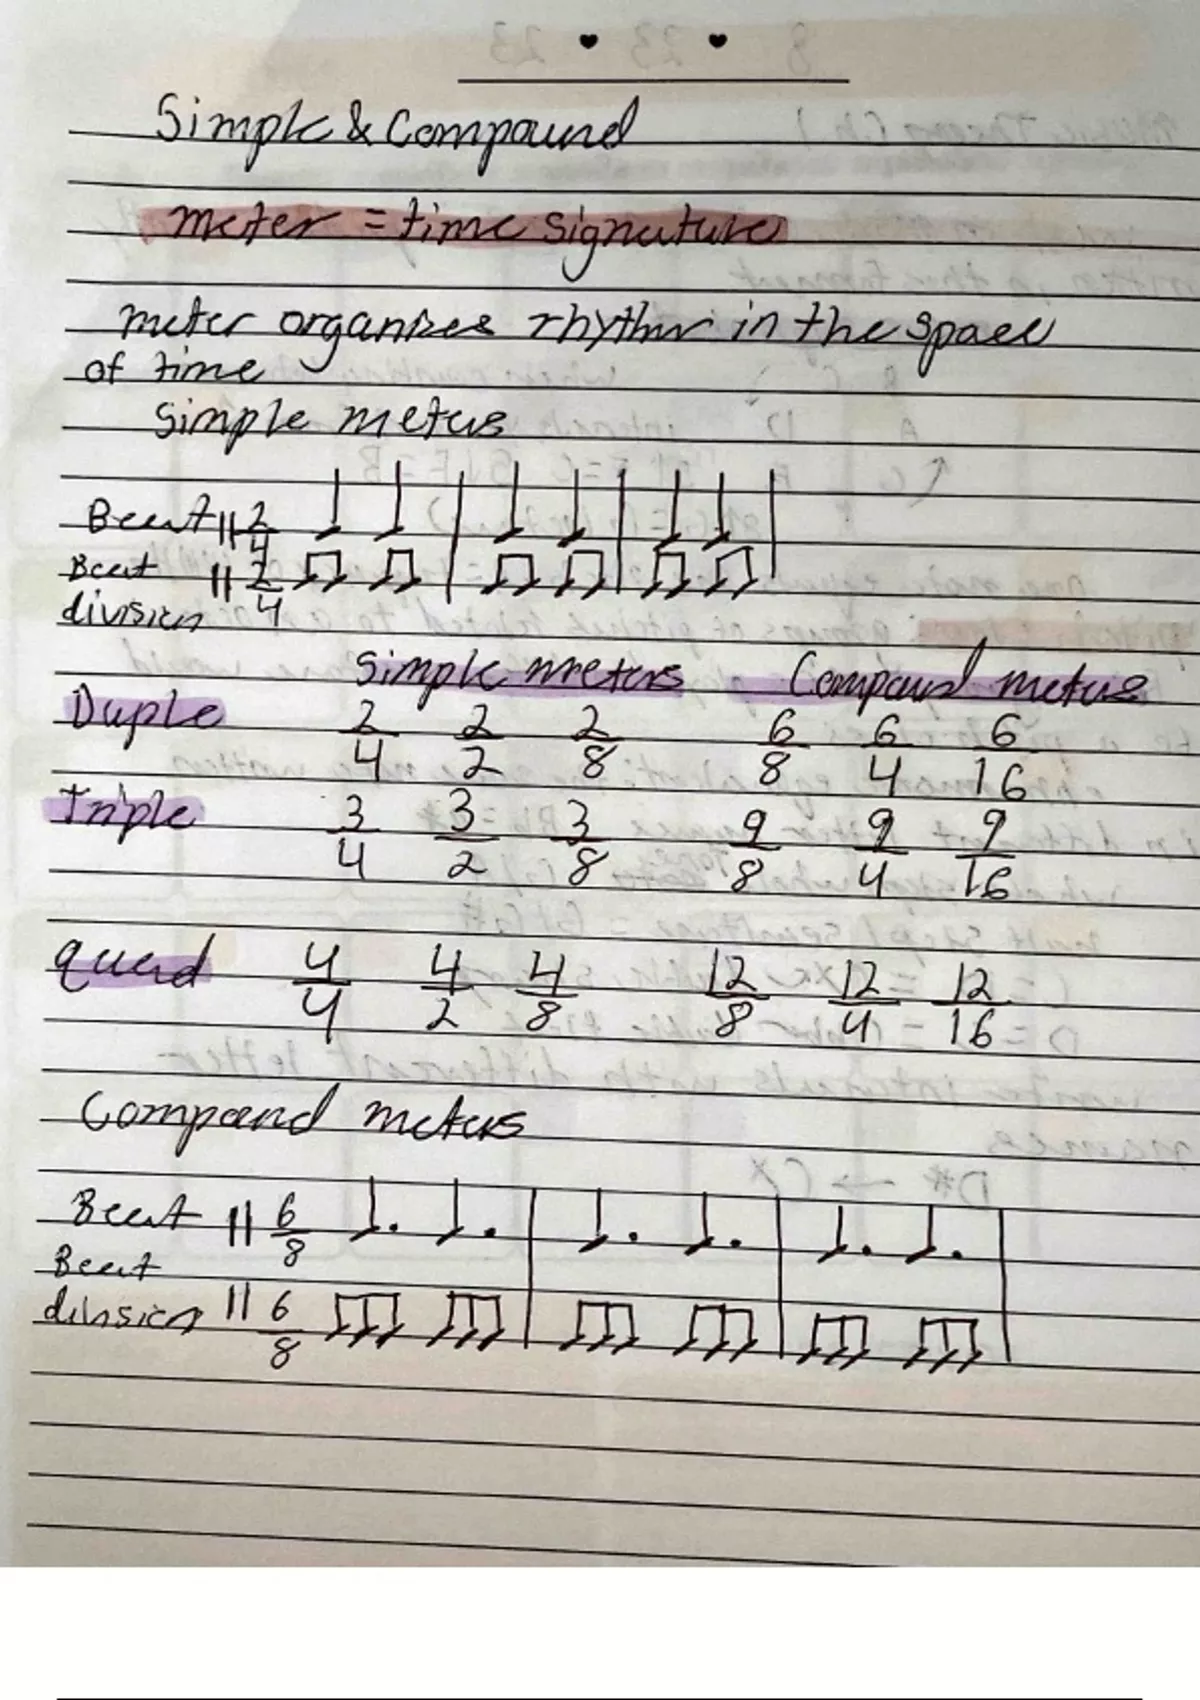 Simple & Compound
meter = time signature
meter organizes rhythm in the space
of time
Simple meters
Beat 2/4
Beat 2/4
division
Simple meters Compound meters
Duple 2/4 2/2 2/8 6/8 6/4 6/16
Triple 3/4 3/2 3/8 9/8 9/4 9/16
quad 4/4 4/2 4/8 12/8 12/4 12/16
Compound meters
Beat 6/8
Beat
division 6/8